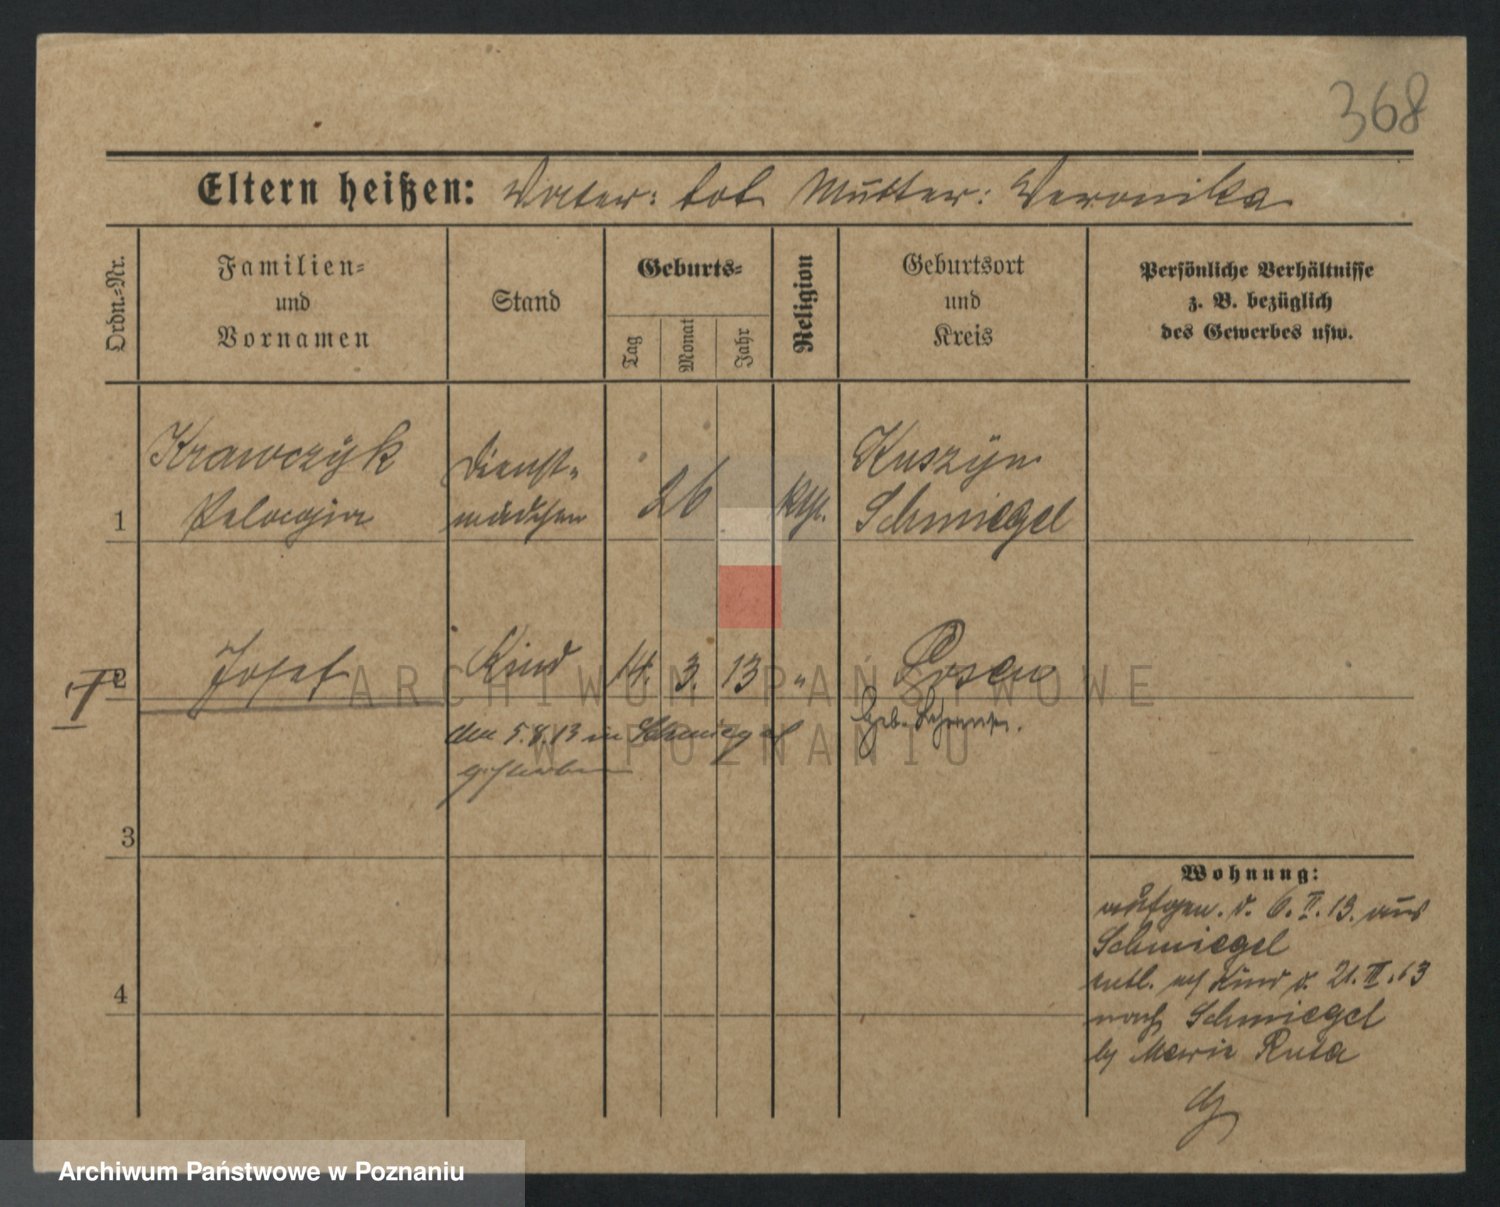 368
Eltern heißen: Vater: tot Mutter: Veronika
Ordn.-Nr.
Familien-
und
Vornamen
Stand
Geburts-
Tag
Monat
Jahr
Religion
Geburtsort
und
Kreis
Persönliche Verhältnisse
z. B. bezüglich
des Gewerbes usw.
1
Krawczÿk
Pelagia
Dienst-
mädchen
26
kth.
Kuszÿn
Schmiegel
2
Josef
Kind
14. 3. 13
"
Posen
Geb.
den 5.8.13 in Schmiegel
gestorben
3
4
Wohnung:
aufgen. d. 6. II. 13. aus
Schmiegel
entl. mit Kind d. 21. III. 13
nach Schmiegel
bei Maria Ruta
ARCHIWUM PAŃSTWOWE
W POZNANIU
Archiwum Państwowe w Poznaniu